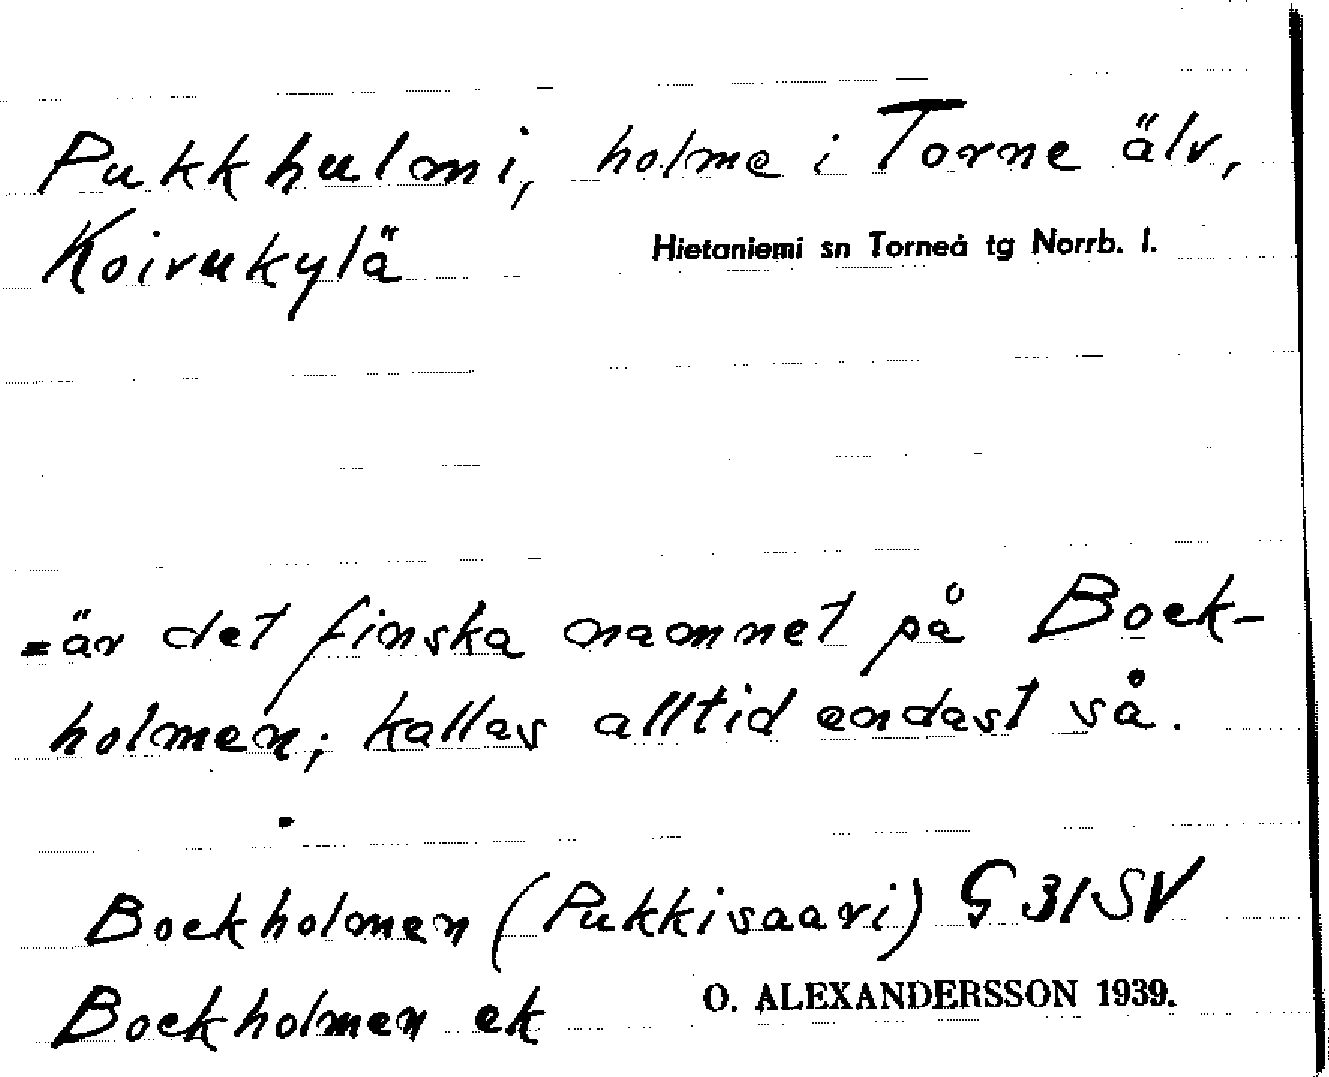 Pukkhulmi, holme i Torne älv,
Koivukylä Hietaniemi sn Torneå tg Norrb. l.
= är det finska namnet på Bock-
holmen; kallas alltid endast så.
Bockholmen (Pukkisaari) G 31 SV
Bockholmen ek O. ALEXANDERSSON 1939.